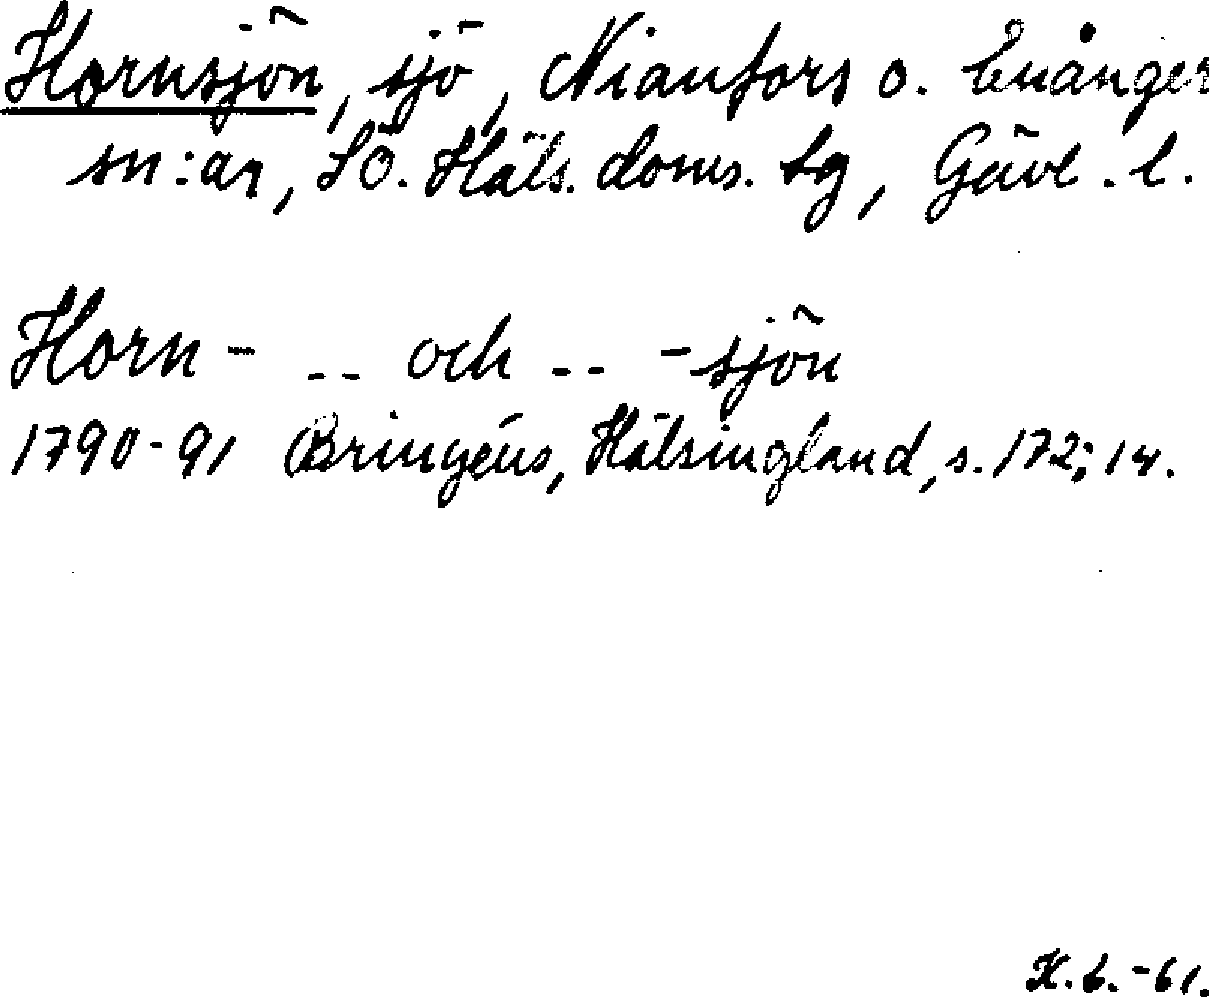 Hornsjön, sjö, Nianfors o. Enånger
sn:ar, SÖ. Häls. doms. tg, Gävl. l.
Horn- -- och -- -sjön
1790-91 Bringéus, Hälsingland, s. 172; 14.
K.L.-61.